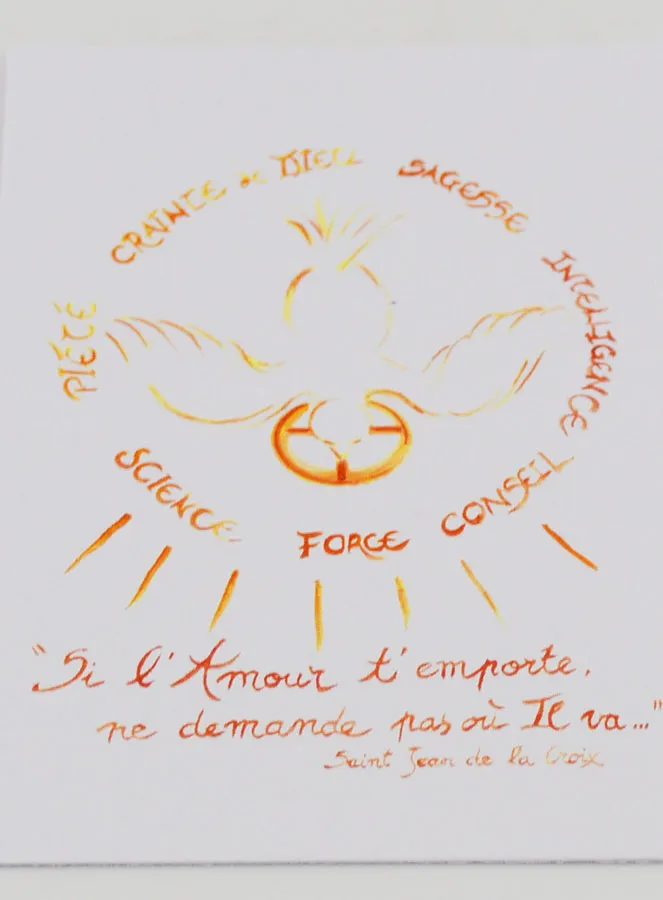 PIÉTÉ
CRAINTE de DIEU
SAGESSE
INTELLIGENCE
CONSEIL
FORCE
SCIENCE
"Si l'Amour t'emporte,
ne demande pas où Il va..."
Saint Jean de la Croix